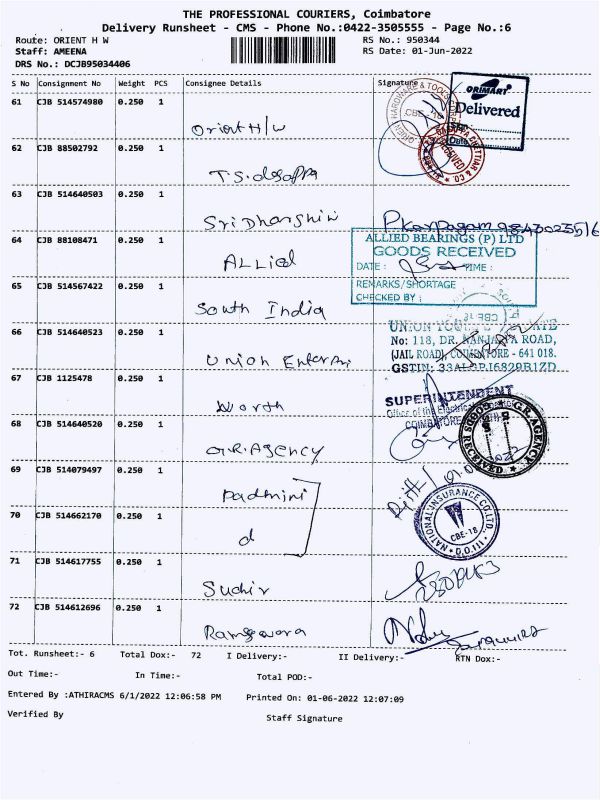 THE PROFESSIONAL COURIERS, Coimbatore
Delivery Runsheet - CMS - Phone No.:0422-3505555 - Page No.:6
Route: ORIENT H W RS No.: 950344
Staff: AMEENA RS Date: 01-Jun-2022
DRS No.: DCJB95034406
S No Consignment No Weight PCS Consignee Details Signature
61 CJB 514574980 0.250 1 Orient H/W
ORIMART
Delivered
Date
CBE-18
RECEIVED
62 CJB 88502792 0.250 1
63 CJB 514640503 0.250 1 Sri Dharshin
64 CJB 88108471 0.250 1 ALLied
ALLIED BEARINGS (P) LTD
GOODS RECEIVED
DATE : TIME :
REMARKS/SHORTAGE
CHECKED BY :
65 CJB 514567422 0.250 1 South India
66 CJB 514640523 0.250 1 Union
No: 118, DR. NANJAPPA ROAD,
(JAIL ROAD), COIMBATORE - 641 018.
67 CJB 1125478 0.250 1 Worth
SUPERINTENDENT
68 CJB 514640520 0.250 1 G.R.AGENCY
G.R.AGENCY
GOODS RECEIVED
69 CJB 514079497 0.250 1 Padmini
70 CJB 514662170 0.250 1 d
NATIONAL INSURANCE CO.LTD.
CBE-18
D.O.III
71 CJB 514617755 0.250 1 Sudhir
72 CJB 514612696 0.250 1
Tot. Runsheet:- 6 Total Dox:- 72 I Delivery:- II Delivery:- RTN Dox:-
Out Time:- In Time:- Total POD:-
Entered By :ATHIRACMS 6/1/2022 12:06:58 PM Printed On: 01-06-2022 12:07:09
Verified By Staff Signature